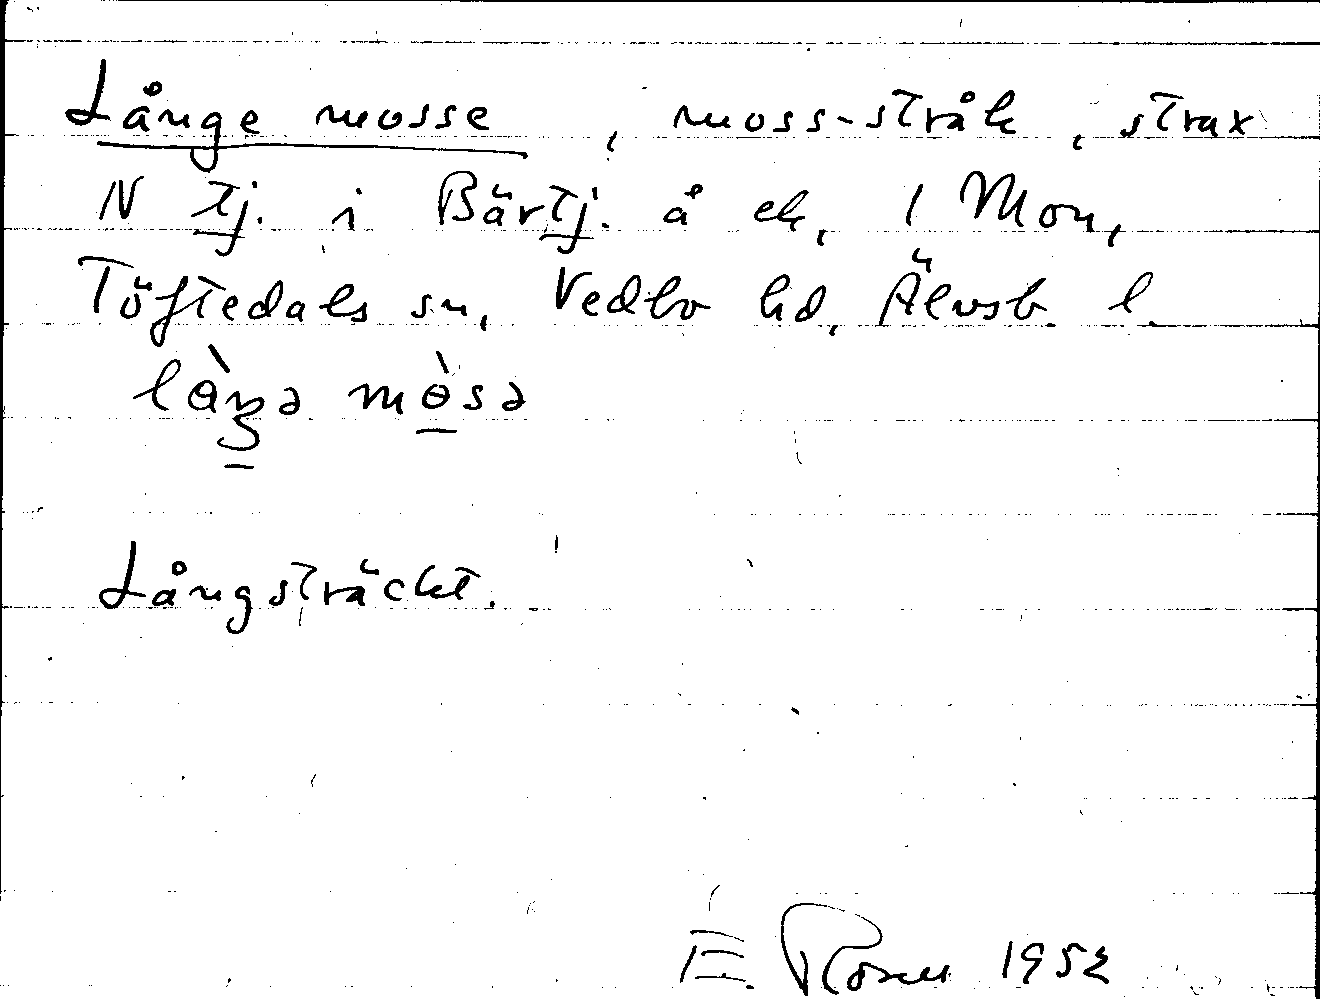 Långe mosse, moss-stråk, strax
N tj. i Bärtj. å ek, 1 Mon,
Töftedals sn, Vedbo hd, Älvsb. l.
lɵ̀ŋə mɵ̀sə
Långsträckt.
E. Rosell 1952